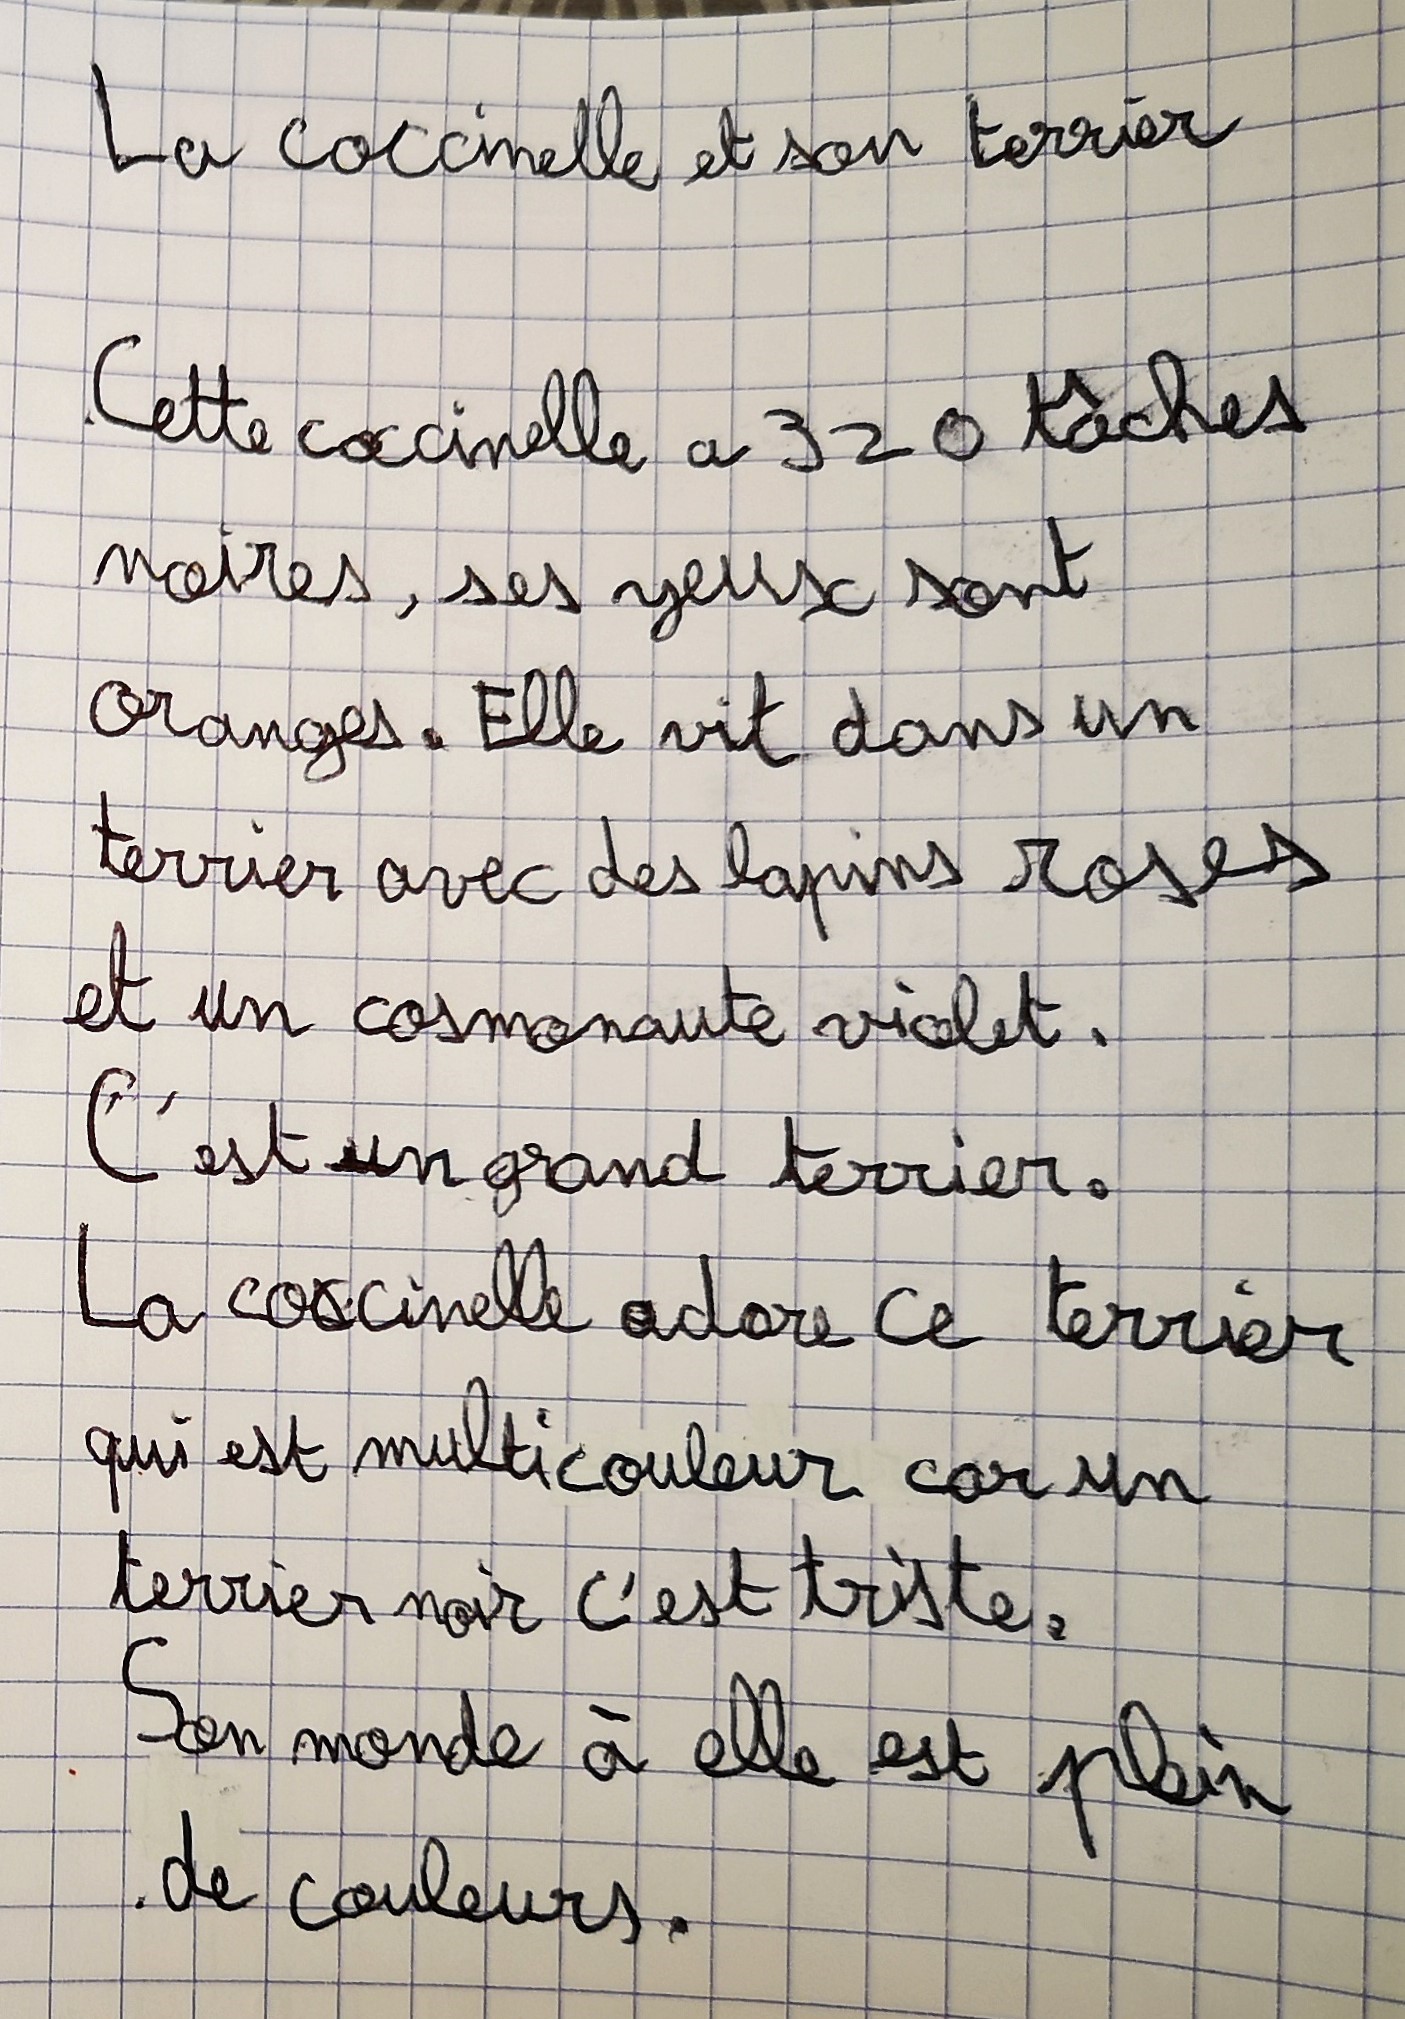 La coccinelle et son terrier
Cette coccinelle a 320 tâches
noires, ses yeux sont
oranges. Elle vit dans un
terrier avec des lapins roses
et un cosmonaute violet.
C'est un grand terrier.
La coccinelle adore ce terrier
qui est multicouleur car un
terrier noir c'est triste.
Son monde à elle est plein
de couleurs.